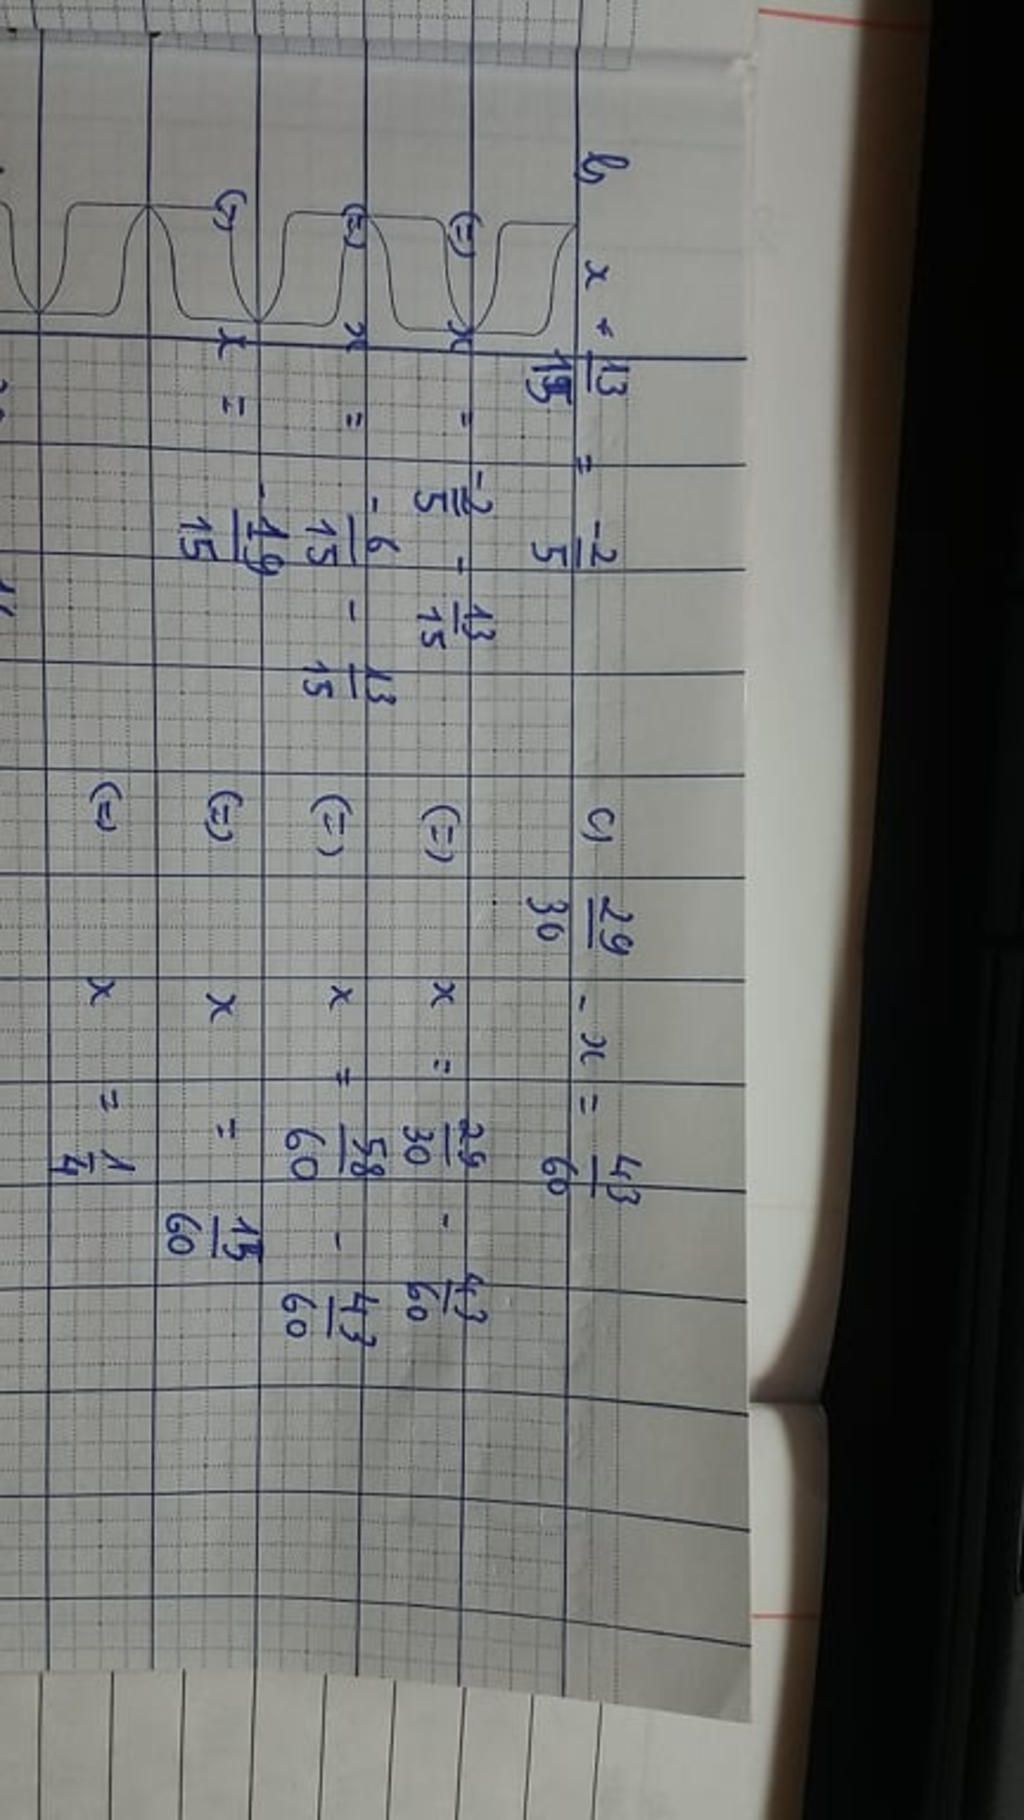 b, x + 13/15 = -2/5
(=) x = -2/5 - 13/15
(=) x = -6/15 - 13/15
(=) x = -19/15
c) 29/30 - x = 43/60
(=) x = 29/30 - 43/60
(=) x = 58/60 - 43/60
(=) x = 15/60
(=) x = 1/4